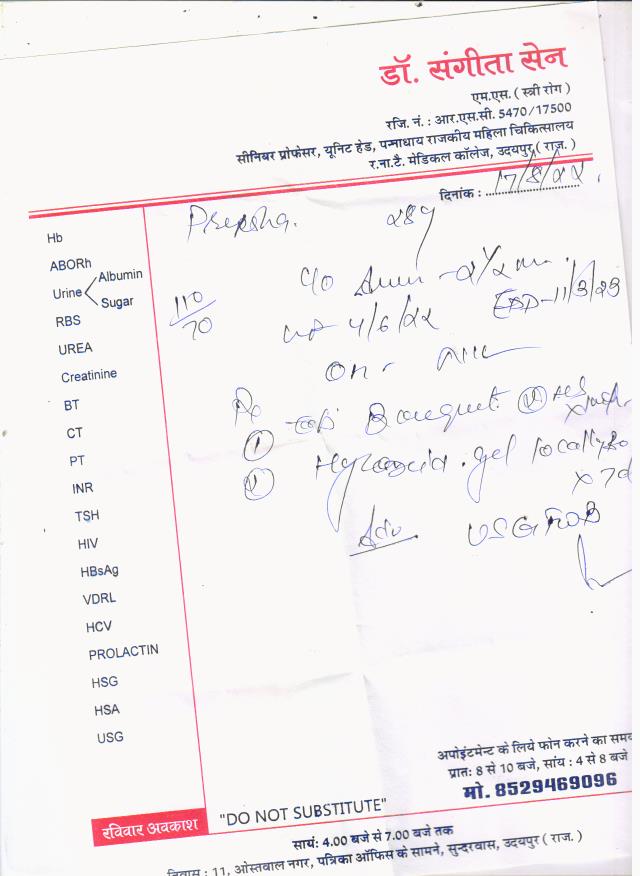 डॉ. संगीता सेन
एम.एस. ( स्त्री रोग )
रजि. नं. : आर.एस.सी. 5470/17500
सीनियर प्रोफेसर, यूनिट हेड, पन्नाधाय राजकीय महिला चिकित्सालय
र.ना.टै. मेडिकल कॉलेज, उदयपुर ( राज. )
दिनांक : 17/8/22
Hb
ABORh
Urine Albumin
Sugar
RBS
UREA
Creatinine
BT
CT
PT
INR
TSH
HIV
HBsAg
VDRL
HCV
PROLACTIN
HSG
HSA
USG
28y
110/70
c/o - 2½
4/6/22 EDD - 11/3/23
On
Rx
gel locally
x 7d
Adv USG
अपोइंटमेन्ट के लिये फोन करने का
प्रात: 8 से 10 बजे, सांय : 4 से 8 बजे
मो. 8529469096
रविवार अवकाश "DO NOT SUBSTITUTE"
सायं: 4.00 बजे से 7.00 बजे तक
निवास : 11, ओस्तवाल नगर, पत्रिका ऑफिस के सामने, सुन्दरवास, उदयपुर ( राज. )